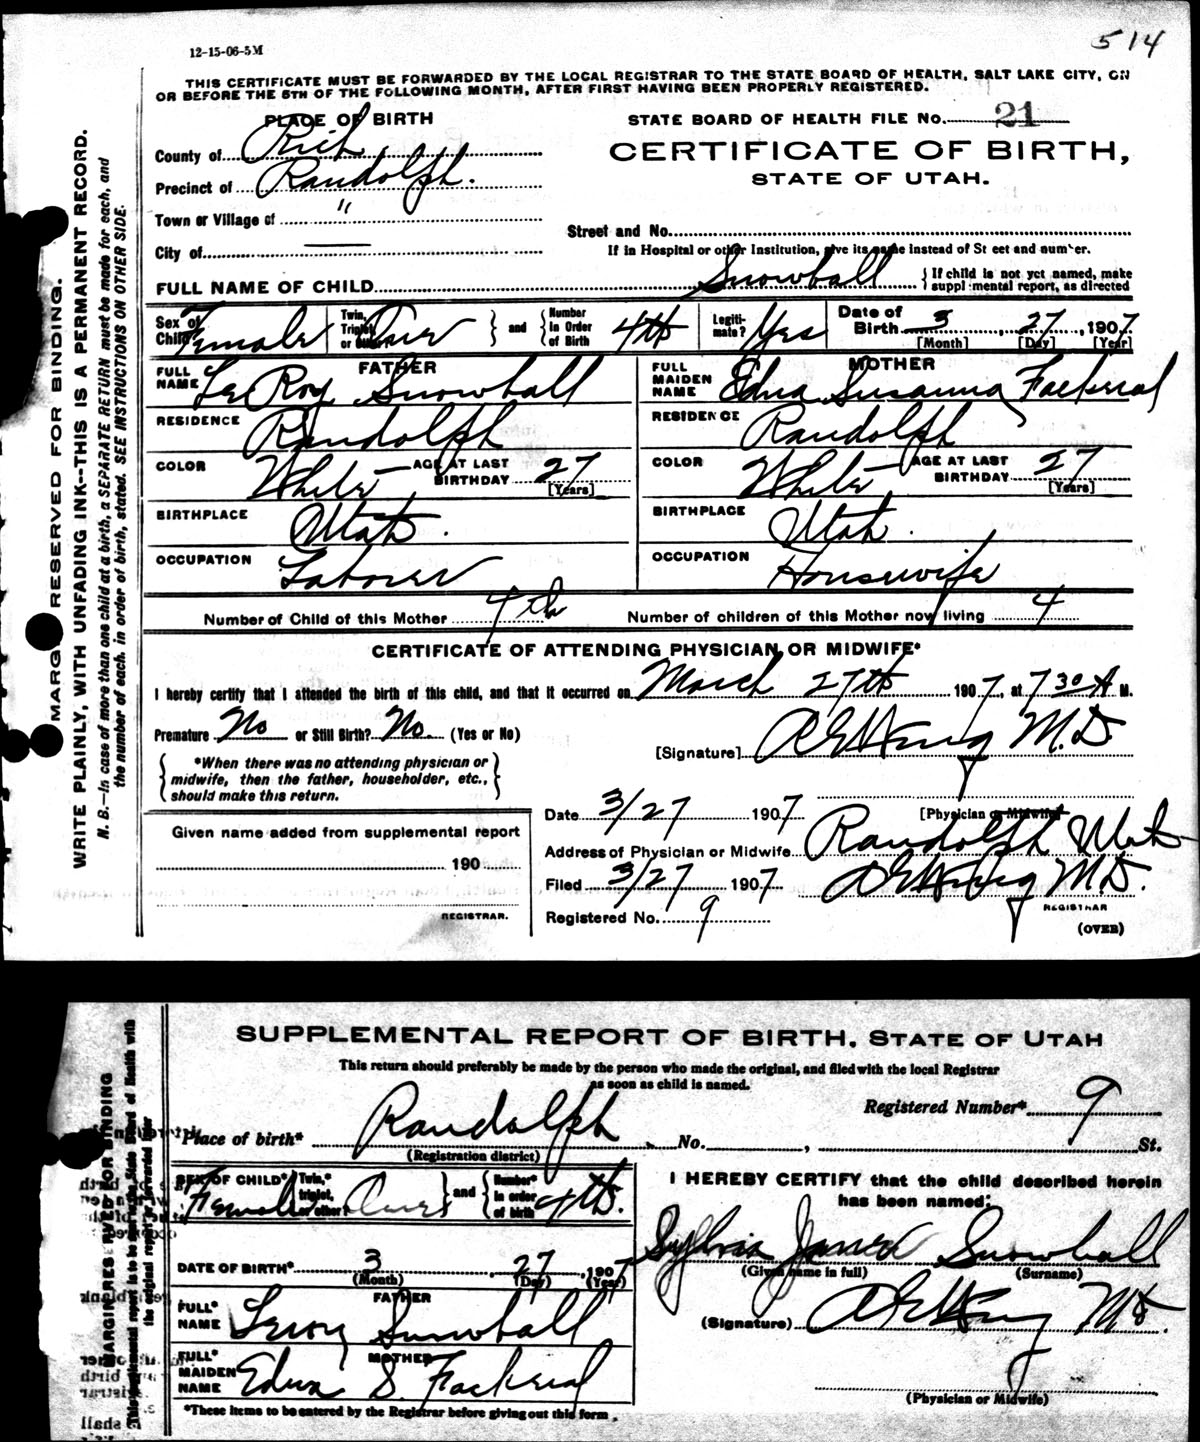 12-15-06-5M
514
THIS CERTIFICATE MUST BE FORWARDED BY THE LOCAL REGISTRAR TO THE STATE BOARD OF HEALTH, SALT LAKE CITY, ON
OR BEFORE THE 5TH OF THE FOLLOWING MONTH, AFTER FIRST HAVING BEEN PROPERLY REGISTERED.
MARGIN RESERVED FOR BINDING.
WRITE PLAINLY, WITH UNFADING INK--THIS IS A PERMANENT RECORD.
N. B.—In case of more than one child at a birth, a SEPARATE RETURN must be made for each, and
the number of each, in order of birth, stated. SEE INSTRUCTIONS ON OTHER SIDE.
PLACE OF BIRTH
County of Rich
Precinct of Randolph.
Town or Village of "
City of —
STATE BOARD OF HEALTH FILE No. 21
CERTIFICATE OF BIRTH,
STATE OF UTAH.
Street and No.
If in Hospital or other Institution, give its name instead of St eet and number.
FULL NAME OF CHILD Snowball { If child is not yet named, make
supplemental report, as directed
Sex of Child Female Twin, Triplet or Other and Number in Order of Birth 4th Legitimate? Yes Date of Birth 3 27, 1907
[Month] [Day] [Year]
FATHER
FULL NAME LeRoy Snowball
RESIDENCE Randolph
COLOR White AGE AT LAST BIRTHDAY 27
[Years]
BIRTHPLACE Utah.
OCCUPATION Laborer
MOTHER
FULL MAIDEN NAME Edna Susanna Fackrral
RESIDENCE Randolph
COLOR White AGE AT LAST BIRTHDAY 27
[Years]
BIRTHPLACE Utah.
OCCUPATION Housewife
Number of Child of this Mother 4th Number of children of this Mother now living 4
CERTIFICATE OF ATTENDING PHYSICIAN OR MIDWIFE*
I hereby certify that I attended the birth of this child, and that it occurred on March 27th 1907, at 7 30 A M.
Premature No or Still Birth? No. (Yes or No)
[Signature] M.D
*When there was no attending physician or
midwife, then the father, householder, etc.,
should make this return.
[Physician or Midwife]
Date 3/27 1907
Address of Physician or Midwife Randolph Utah
Filed 3/27 1907 M.D.
REGISTRAR
Registered No. 9
(OVER)
Given name added from supplemental report
190
REGISTRAR.
SUPPLEMENTAL REPORT OF BIRTH, STATE OF UTAH
This return should preferably be made by the person who made the original, and filed with the local Registrar
as soon as child is named.
MARGIN RESERVED FOR BINDING
Registered Number* 9
Place of birth* Randolph No. , St.
(Registration district)
SEX OF CHILD* Female Twin,* triplet, or other and Number* in order of birth 4th.
DATE OF BIRTH* 3 27, 1907
(Month) (Day) (Year)
FATHER
FULL* NAME Leroy Snowball
MOTHER
FULL* MAIDEN NAME Edna S. Fackrral
*These items to be entered by the Registrar before giving out this form.
I HEREBY CERTIFY that the child described herein
has been named:
Sylvia Snowball
(Given name in full) (Surname)
(Signature) M.D.
(Physician or Midwife)